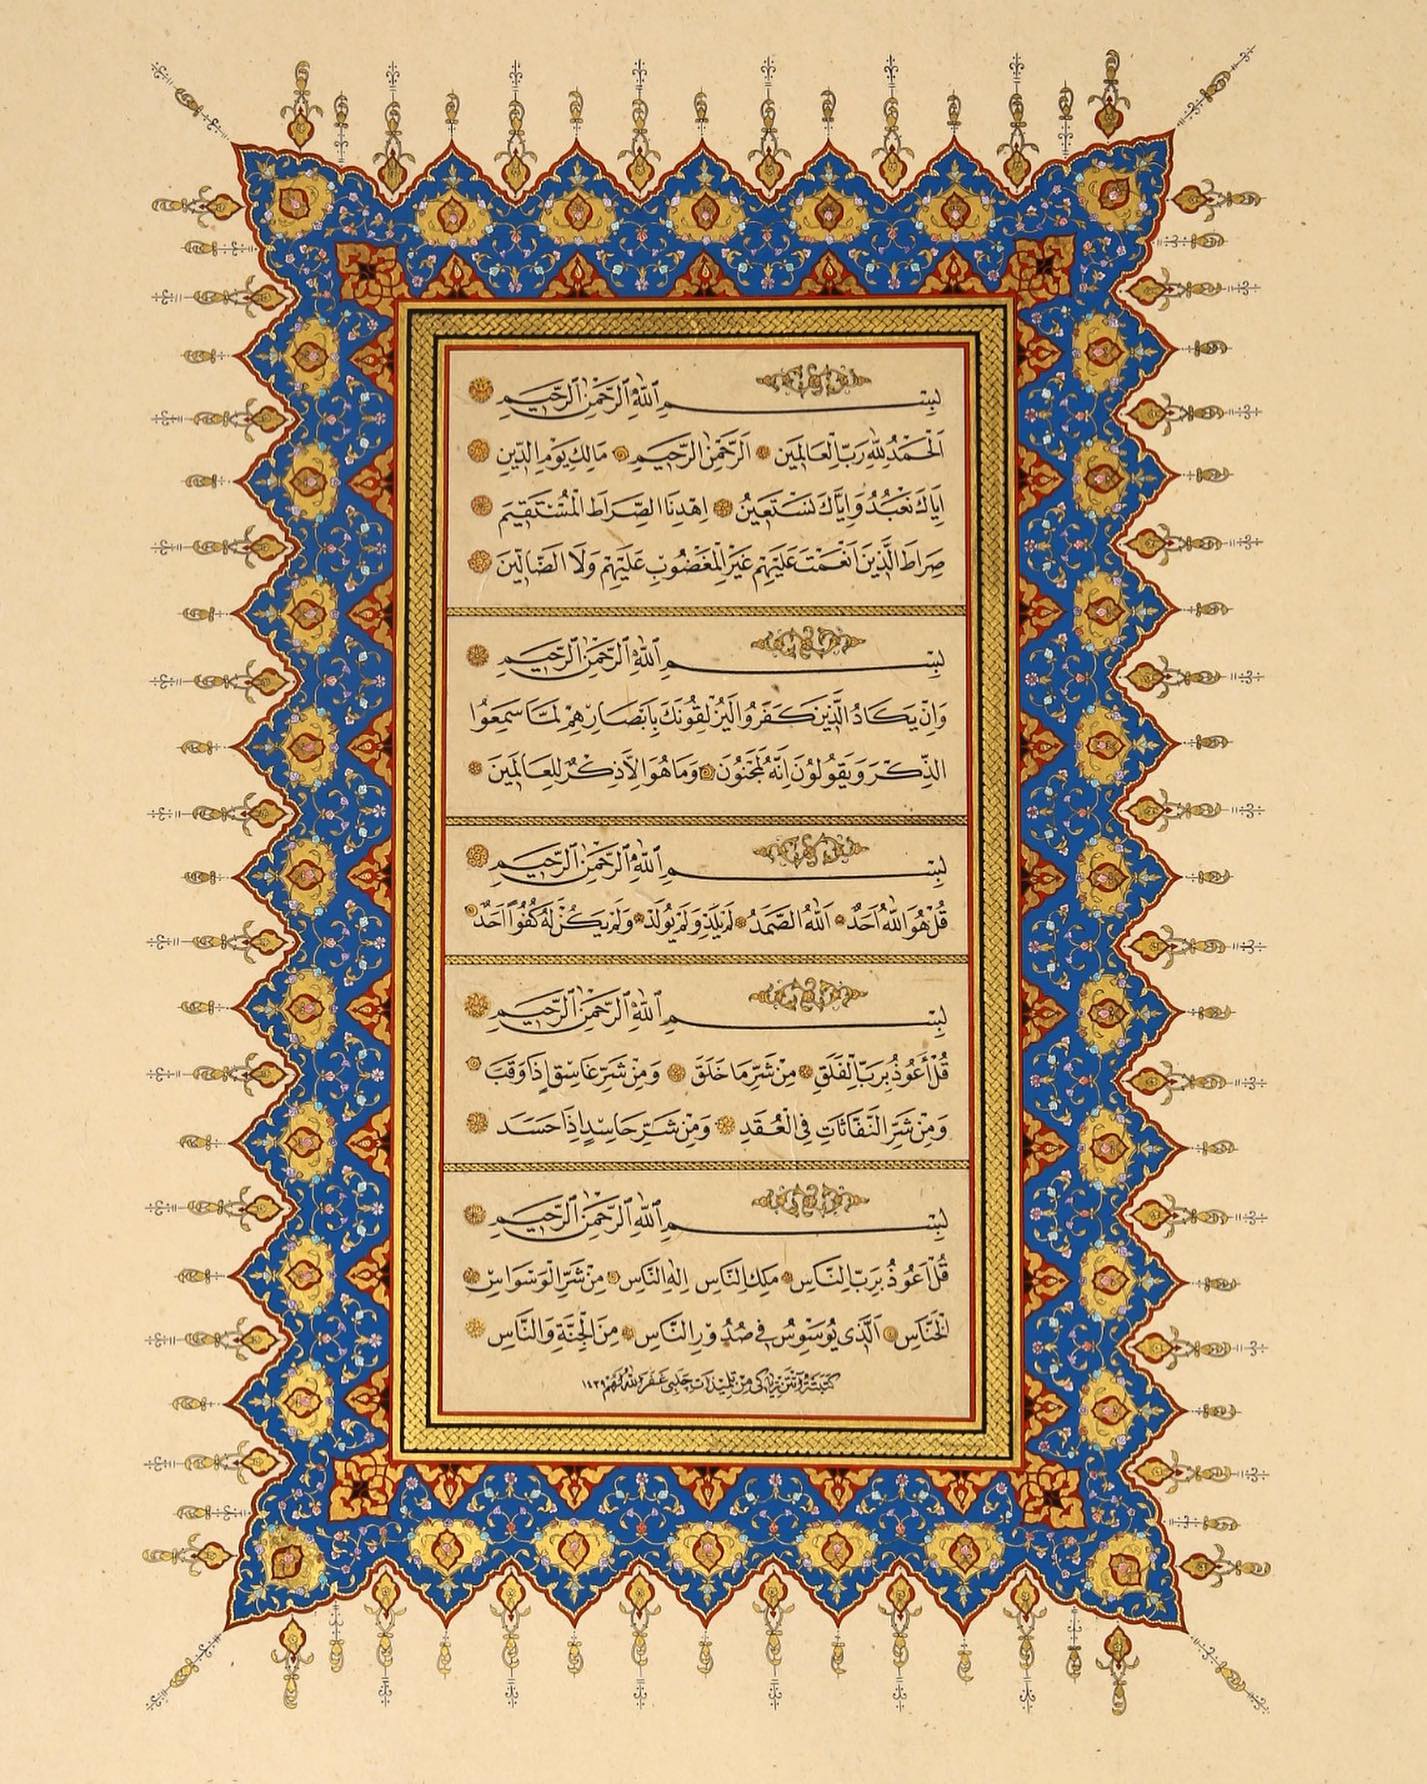 بِسْمِ ٱللّٰهِ ٱلرَّحْمٰنِ ٱلرَّحِيمِ
اَلْحَمْدُ لِلّٰهِ رَبِّ الْعَالَمِينَ اَلرَّحْمٰنِ الرَّحِيمِ مَالِكِ يَوْمِ الدِّينِ
اِيَّاكَ نَعْبُدُ وَاِيَّاكَ نَسْتَعِينُ اِهْدِنَا الصِّرَاطَ الْمُسْتَقِيمَ
صِرَاطَ الَّذِينَ اَنْعَمْتَ عَلَيْهِمْ غَيْرِ الْمَغْضُوبِ عَلَيْهِمْ وَلَا الضَّالِّينَ
بِسْمِ ٱللّٰهِ ٱلرَّحْمٰنِ ٱلرَّحِيمِ
وَاِنْ يَكَادُ الَّذِينَ كَفَرُوا لَيُزْلِقُونَكَ بِاَبْصَارِهِمْ لَمَّا سَمِعُوا
الذِّكْرَ وَيَقُولُونَ اِنَّهُ لَمَجْنُونٌ وَمَا هُوَ اِلَّا ذِكْرٌ لِلْعَالَمِينَ
بِسْمِ ٱللّٰهِ ٱلرَّحْمٰنِ ٱلرَّحِيمِ
قُلْ هُوَ اللّٰهُ اَحَدٌ اَللّٰهُ الصَّمَدُ لَمْ يَلِدْ وَلَمْ يُولَدْ وَلَمْ يَكُنْ لَهُ كُفُوًا اَحَدٌ
بِسْمِ ٱللّٰهِ ٱلرَّحْمٰنِ ٱلرَّحِيمِ
قُلْ أَعُوذُ بِرَبِّ الْفَلَقِ مِنْ شَرِّ مَا خَلَقَ وَمِنْ شَرِّ غَاسِقٍ اِذَا وَقَبَ
وَمِنْ شَرِّ النَّفَّاثَاتِ فِي الْعُقَدِ وَمِنْ شَرِّ حَاسِدٍ اِذَا حَسَدَ
بِسْمِ ٱللّٰهِ ٱلرَّحْمٰنِ ٱلرَّحِيمِ
قُلْ اَعُوذُ بِرَبِّ النَّاسِ مَلِكِ النَّاسِ اِلٰهِ النَّاسِ مِنْ شَرِّ الْوَسْوَاسِ
الْخَنَّاسِ اَلَّذِي يُوَسْوِسُ فِي صُدُورِ النَّاسِ مِنَ الْجِنَّةِ وَالنَّاسِ
مِنْ تِلْمِيذَاتِ چَلَبِي غَفَرَ اللّٰهُ لَهُمْ